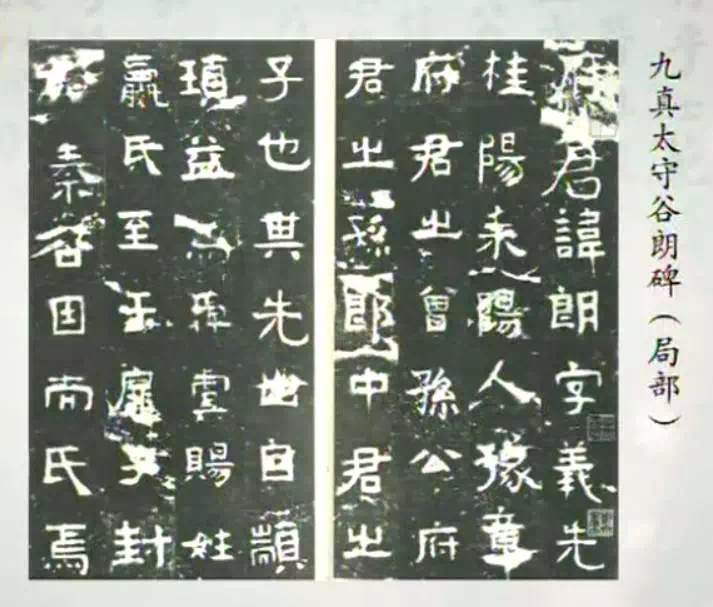 九真太守谷朗碑（局部）
府君諱朗字義先
桂陽耒陽人豫章
府君之曾孫公府
君之孫郎中君之
子也其先出自顓
頊益為虞賜姓
嬴氏至于扉子封
於秦谷因而氏焉